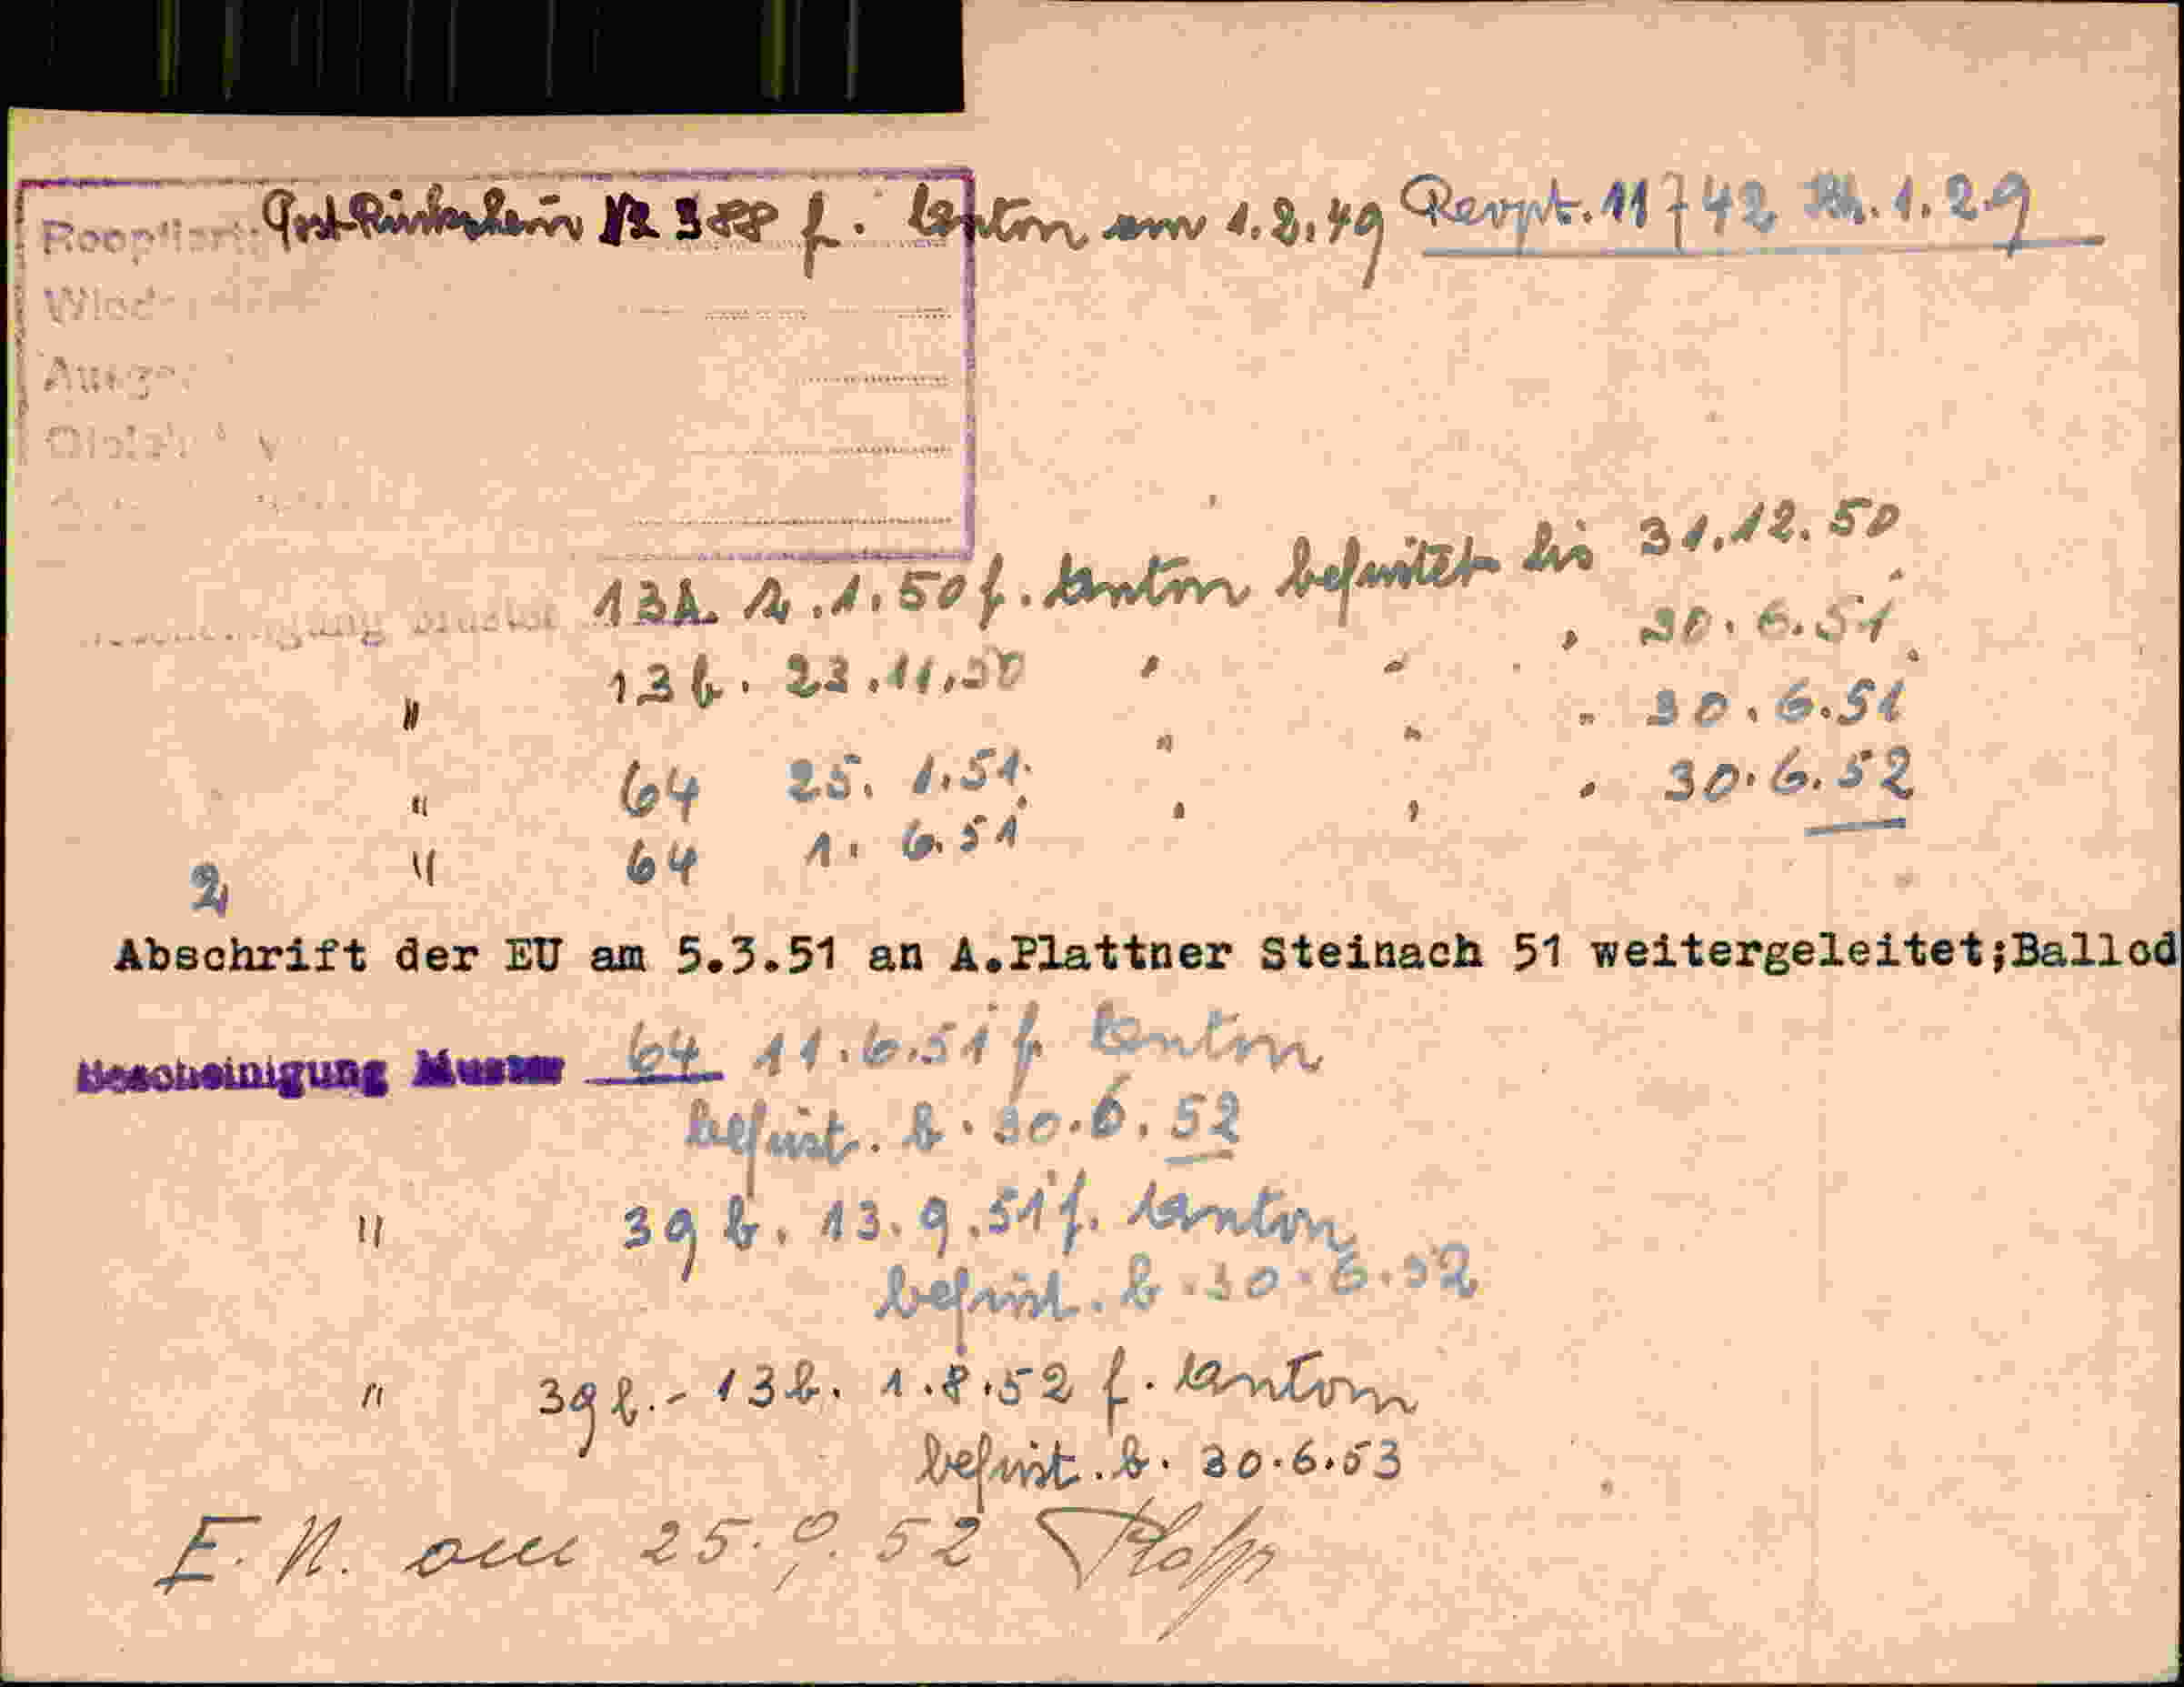 f. Anton am 1.2.49 Reopt. 11742 1.2.9
Wied
Ausge
13b. 1.50 f. Anton befristet bis 31.12.50
" 13b. 23.11.50 " " " 30.6.51
" 64 25.1.51 " " " 30.6.51
" 64 1.6.51 " " " 30.6.52
2
Abschrift der EU am 5.3.51 an A.Plattner Steinach 51 weitergeleitet;Ballod
Bescheinigung Muster 64 11.6.51 f. Anton
befrist. b. 30.6.52
" 39 b. 13.9.51 f. Anton
befrist. b. 30.6.52
" 39 b. - 13 b. 1.8.52 f. Anton
befrist. b. 30.6.53
E. N. am 25.9.52